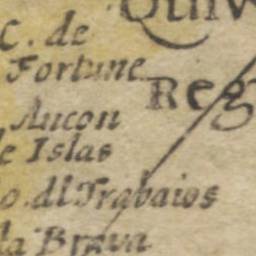 Quiv
C. de
Fortune
Reg
Ancon
e Islas
o. dl Trabaios
la Brava